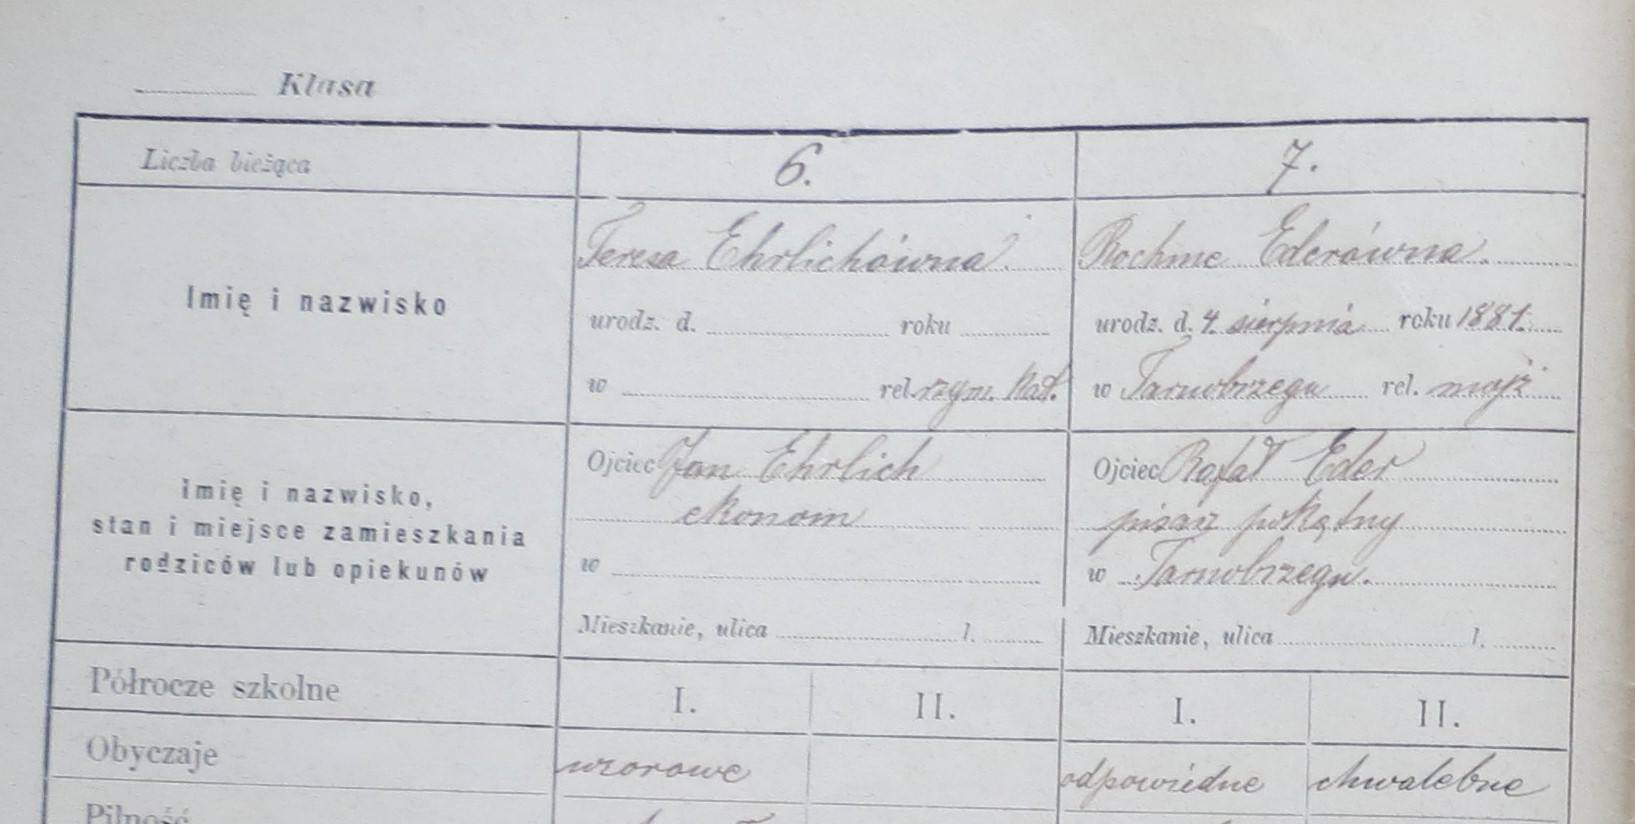 Klasa
Liczba bieżąca 6. 7.
Imię i nazwisko
Teresa Ehrlichówna.
urodz. d. roku
w rel. rzym. kat.
Rochme Ederówna.
urodz. d. 4. sierpnia roku 1881.
w Tarnobrzegu rel. mojż.
Imię i nazwisko,
stan i miejsce zamieszkania
rodziców lub opiekunów
Ojciec Jan Ehrlich
ekonom
w
Mieszkanie, ulica l.
Ojciec Rafał Eder
pisarz pokątny
w Tarnobrzegu.
Mieszkanie, ulica l.
Półrocze szkolne I. II. I. II.
Obyczaje wzorowe odpowiedne chwalebne
Pilność